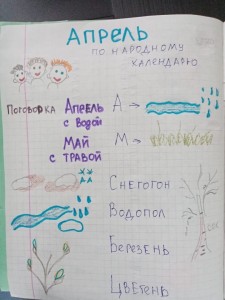 АПРЕЛЬ
ПО НАРОДНОМУ
КАЛЕНДАРЮ
ПОГОВОРКА АПРЕЛЬ А →
С ВОДОЙ
МАЙ М →
С ТРАВОЙ
СНЕГОГОН
ВОДОПОЛ
БЕРЕЗЕНЬ
СОК
ЦВЕТЕНЬ